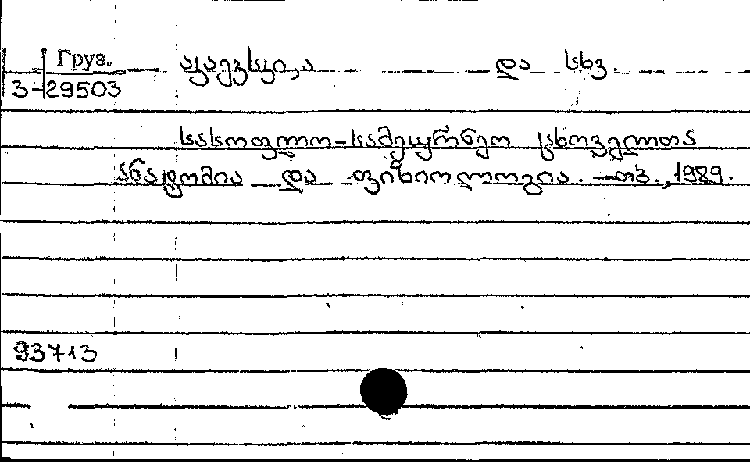 Груз. აკაევსკი, ა და სხვ.
3-29503
სასოფლო-სამეურნეო ცხოველთა
ანატომია და ფიზიოლოგია. — თბ., 1989.
93713